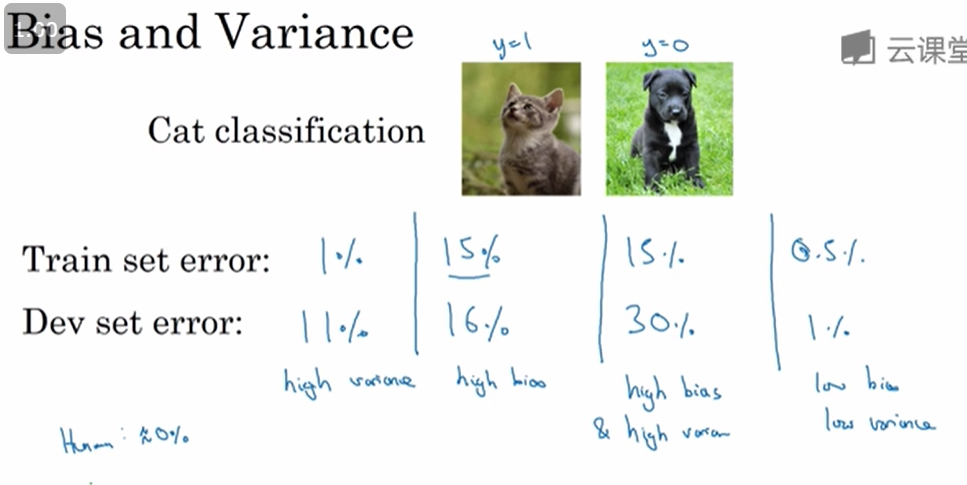 1.00
Bias and Variance
y=1 y=0
云课堂
Cat classification
Train set error: 1% 15% 15% 0.5%
Dev set error: 11% 16% 30% 1%
high variance high bias high bias low bias
& high low variance
Human: ≈0%